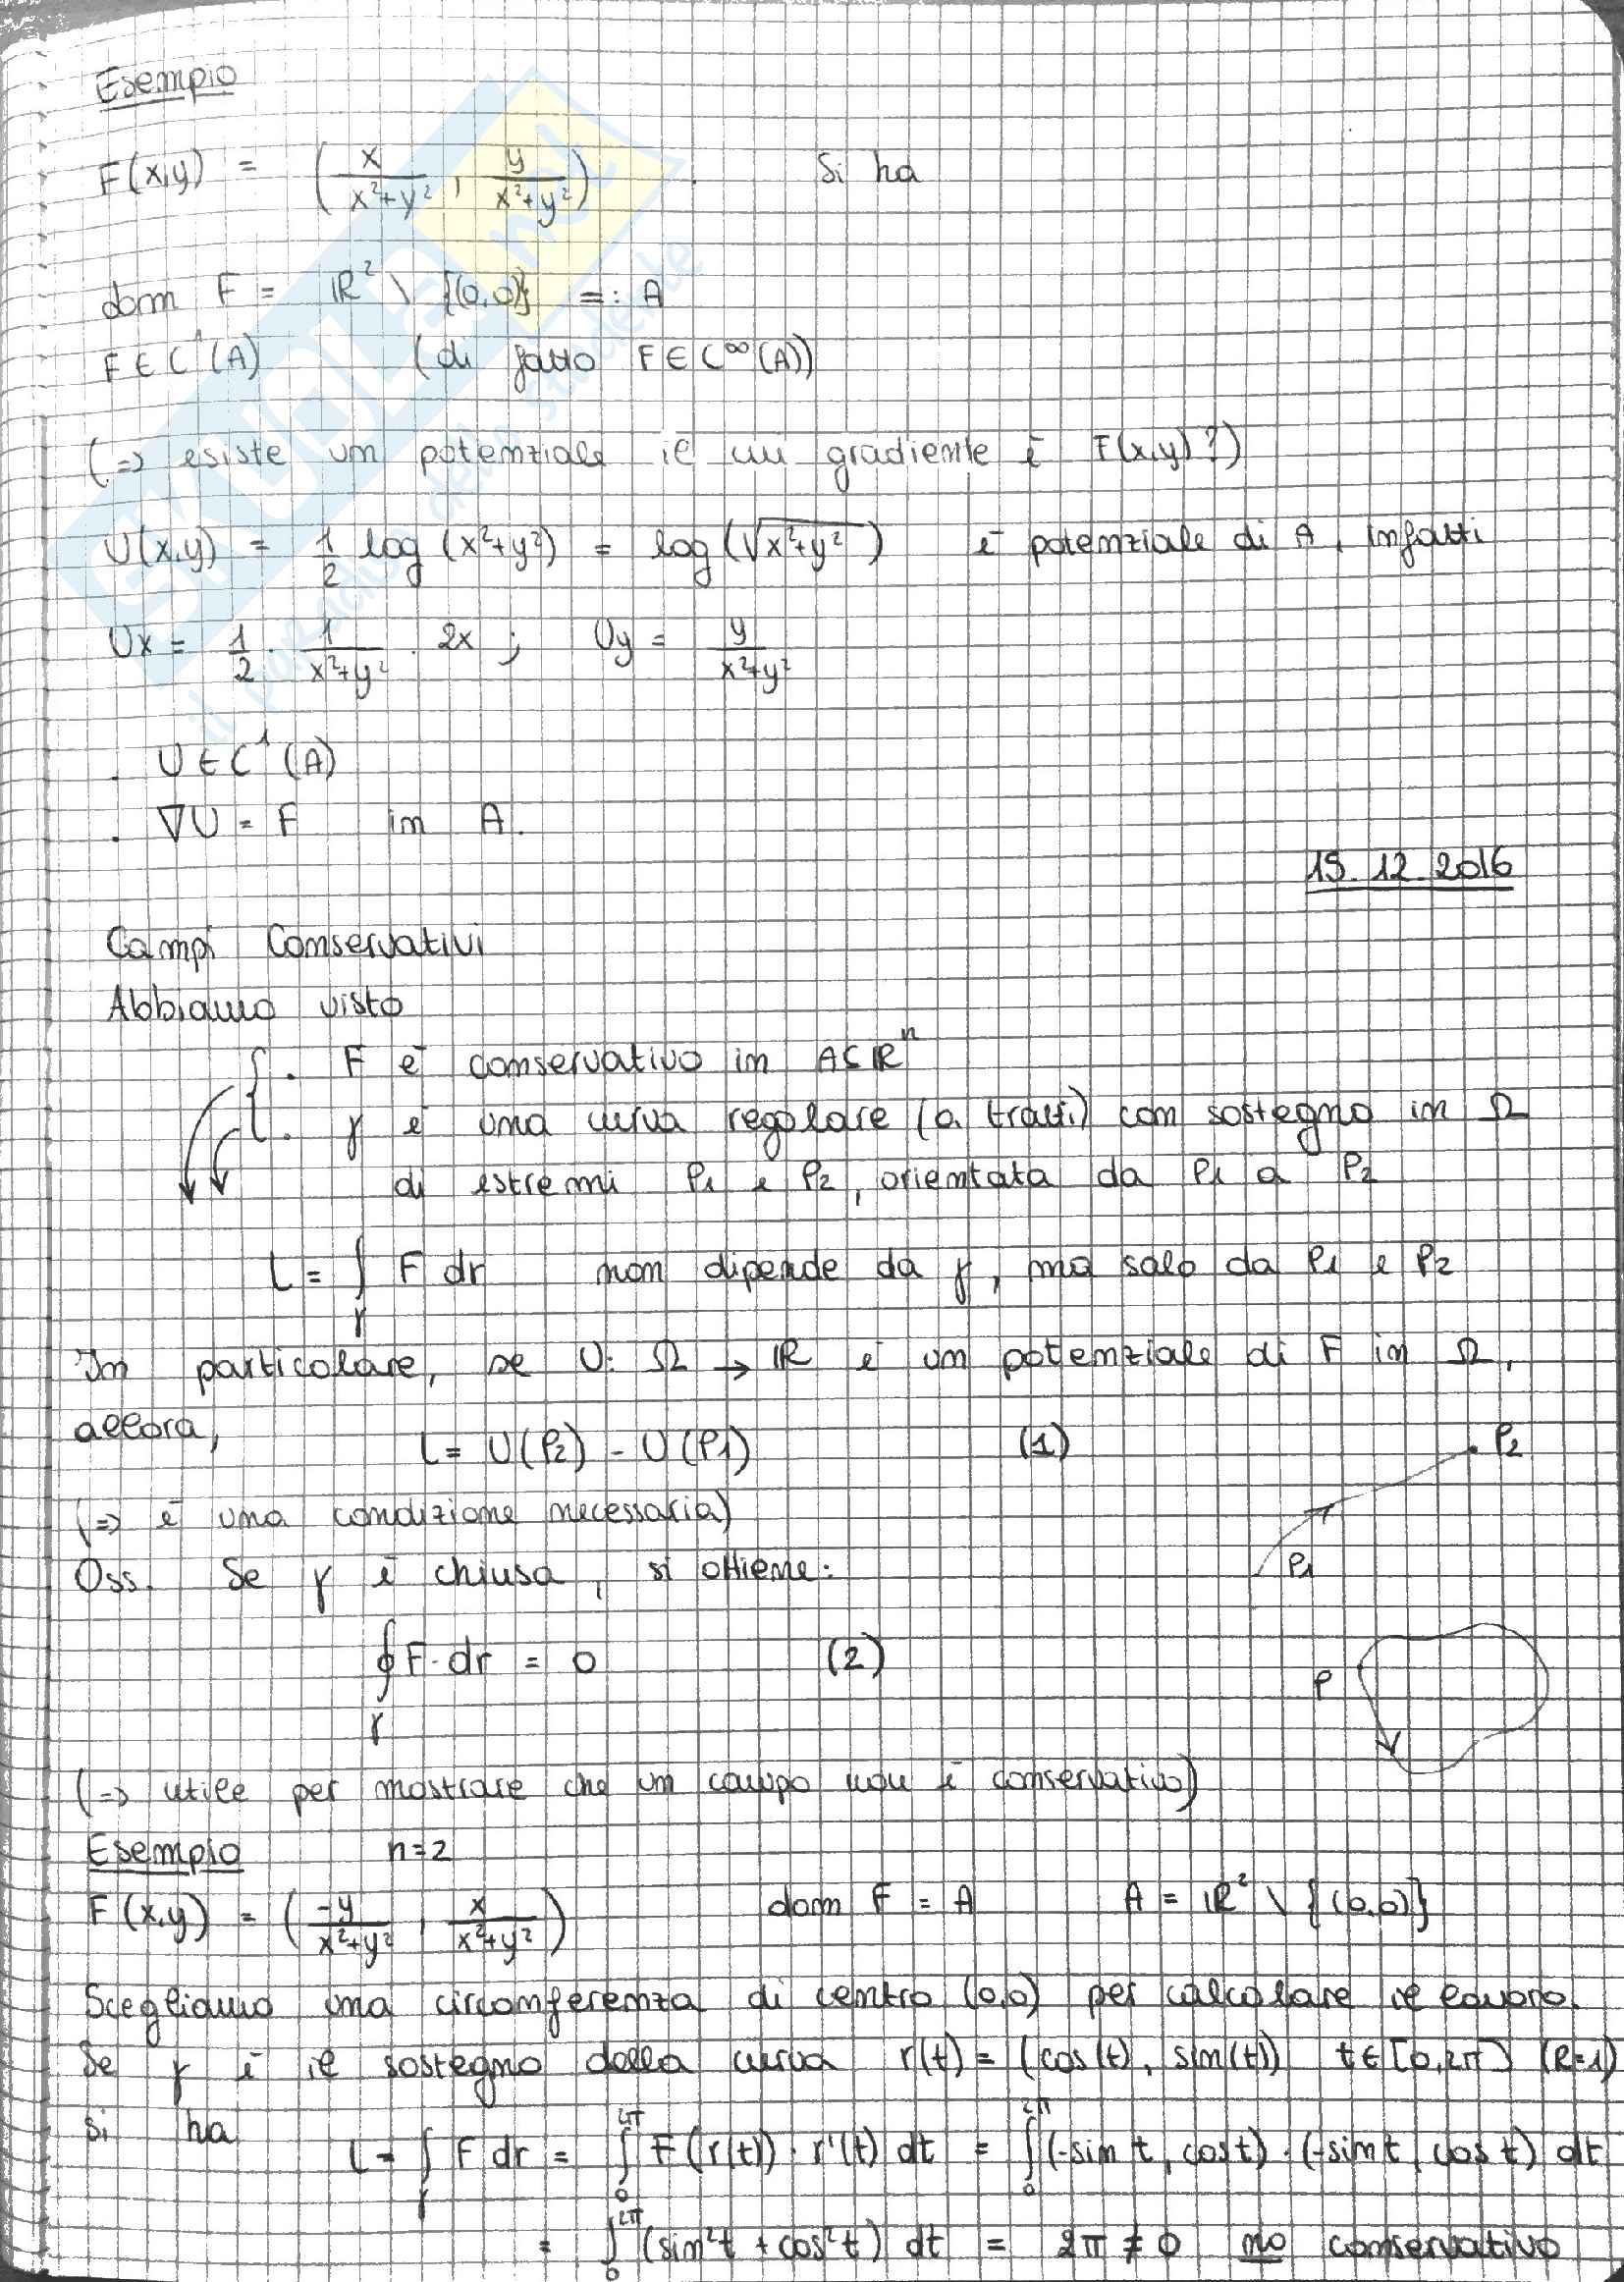 Esempio
F(x,y) = (x/(x²+y²), y/(x²+y²)). Si ha
dom F = ℝ² \ {(0,0)} =: A
F ∈ C¹(A) (di fatto F ∈ C^∞(A))
(=> esiste un potenziale il cui gradiente è F(x,y)?)
U(x,y) = 1/2 log(x²+y²) = log(√(x²+y²)) è potenziale di A, infatti
Ux = 1/2 · 1/(x²+y²) · 2x ; Uy = y/(x²+y²)
· U ∈ C¹(A)
· ∇U = F in A.
15.12.2016
Campi Conservativi
Abbiamo visto
{ · F è conservativo in A ⊆ ℝⁿ
· γ è una curva regolare (a tratti) con sostegno in Ω
di estremi P1 e P2, orientata da P1 a P2
L = ∫γ F dr non dipende da γ, ma solo da P1 e P2
In particolare, se U: Ω → ℝ è un potenziale di F in Ω,
allora,
L = U(P2) - U(P1) (1)
P2
(=> è una condizione necessaria)
P1
Oss. Se γ è chiusa, si ottiene:
∮γ F · dr = 0 (2)
P
(=> utile per mostrare che un campo non è conservativo)
Esempio n=2
F(x,y) = (-y/(x²+y²), x/(x²+y²)) dom F = A A = ℝ² \ {(0,0)}
Scegliamo una circonferenza di centro (0,0) per calcolare il lavoro.
Se γ è il sostegno della curva r(t) = (cos(t), sin(t)) t∈[0,2π] (R=1)
si ha
L = ∫γ F dr = ∫₀^2π F(r(t)) · r'(t) dt = ∫₀^2π (-sin t, cos t) · (-sin t, cos t) dt
= ∫₀^2π (sin²t + cos²t) dt = 2π ≠ 0 no conservativo
SKUOLA.net
il paradiso dello studente